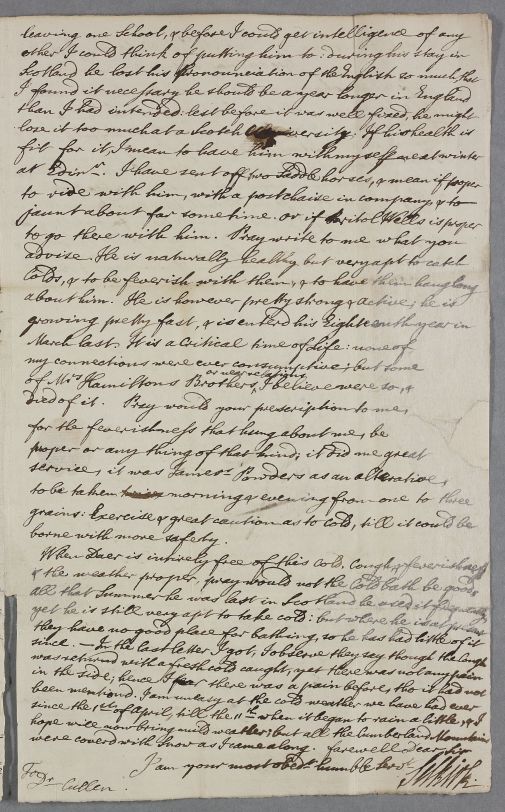 leaving one School, & before I could get intelligence of any
other I could think of putting him to: during his stay in
Scotland he lost his pronounciation of the English so much, that
I found it necessary he should be a year longer in England
than I had intended: lest before it was well fixed, he might
lose it too much at a Scotch University. If his health is
fit for it, I mean to have him with myself next winter
at Edinr. I have sent off two saddle horses, & mean if proper
to ride with him, with a postchaise in company, & to
jaunt about for some time. or if Bristol Wells is proper
to go there with him. Pray write to me what you
advise. He is naturally healthy but very apt to catch
Colds, & to be feverish with them, & to have them hang long
about him. He is however pretty strong & active; he is
growing pretty fast, & is enterd his Eighteenth year in
March last. It is a Critical time of Life: none of
my connections were ever consumptive; but some
of Mrs Hamiltons Brothers, or near relations I believe were so, &
died of it. Pray would your prescription to me,
for the feverishness that hung about me, be
proper or any thing of that kind; it did me great
service, it was Jamess Powders as an alterative,
to be taken morning & evening from one to three
grains: Exercise & great caution as to cold, till it could be
borne with more safety.
When Daer is intirely free of this Cold, Cough, & feverishness
& the weather proper, pray would not the Cold bath be good
all that Summer he was last in Scotland he used it frequently
yet he is still very apt to take cold: but where he is at present
they have no good place for bathing, so he has had little of it
since. — In the last letter I got, I observe they say though the Cough
was returned with a fresh cold caught, yet there was not any pain
in the side; hence I fear there was a pain before, tho it had not
been mentiond. I am uneasy at the cold weather we have had ever
since the 1st of April, till the 11th when it began to rain a little, & I
hope will now bring mild weather; but all the Cumberland Mountains
were coverd with Snow as I came along. farewell, dear Sir
I am your most obedt. humble Servt.
Selkirk.
To Dr Cullen.